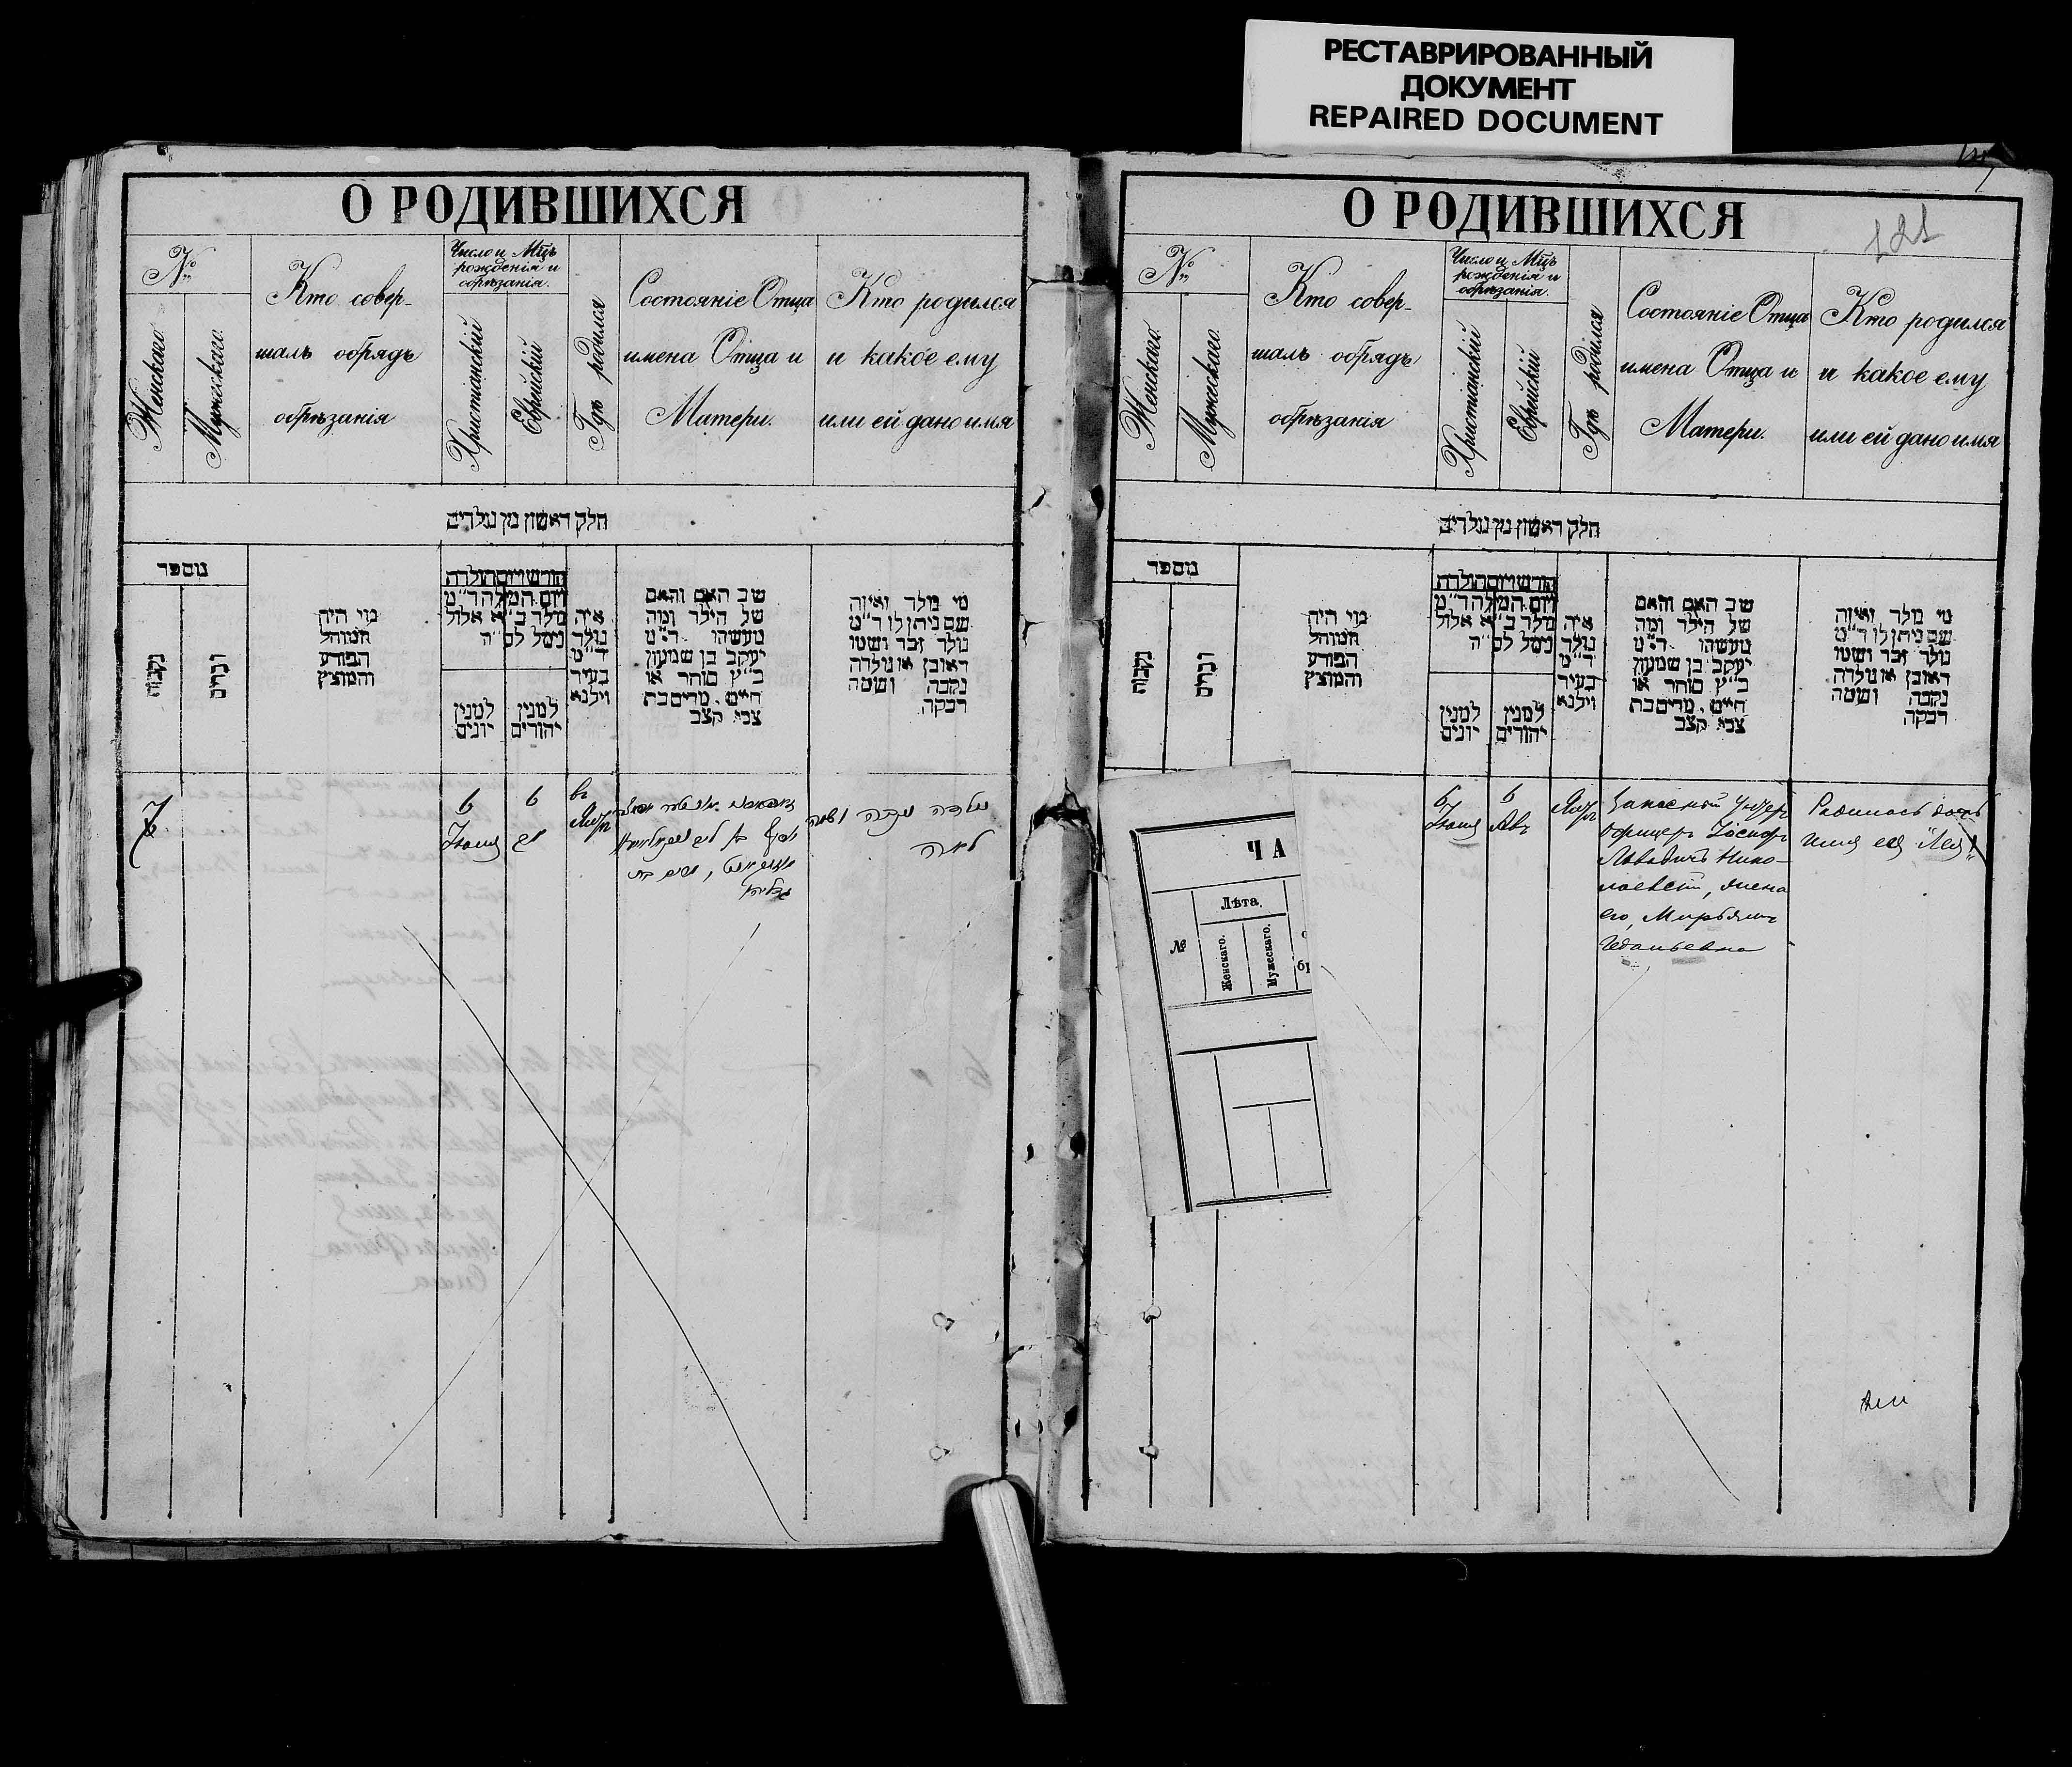 РЕСТАВРИРОВАННЫЙ
ДОКУМЕНТ
REPAIRED DOCUMENT
О РОДИВШИХСЯ
№
Женскаго.
Мужескаго.
Кто совер-
шалъ обрядъ
обрѣзанія
Число и Мцъ
рожденія и
обрѣзанія.
Христианскій
Еврейскій
Гдѣ родился
Состояніе Отца
имена Отца и
Матери.
Кто родился
и какое ему
или ей дано имя
חלק ראשון מן נולדים
מספר
נקבות
זכרים
מי היה
המוהל
הפורע
והמוצץ
חודש ויום הולדת
ויום המילה ד״מ
נולד ב״א אלול
נימל לס״ה
למנין
יונים
למנין
יהודים
איה
נולד
ד״מ
בעיר
וילנא
שם האב והאם
של הילד ומה
מעשהו ד״מ
יעקב בן שמעון
כ״ץ סוחר או
חיים, מרים בת
צבי קצב
מי נולד ואיזה
שם ניתן לו ד״מ
נולד זכר ושמו
ראובן או נולדה
נקבה ושמה
רבקה.
7
6
Іюля
6
אב
въ
נולדה נקבה ושמה
לאה
О РОДИВШИХСЯ
121
№
Женскаго.
Мужескаго.
Кто совер-
шалъ обрядъ
обрѣзанія
Число и Мцъ
рожденія и
обрѣзанія.
Христианскій
Еврейскій
Гдѣ родился
Состояніе Отца
имена Отца и
Матери.
Кто родился
и какое ему
или ей дано имя
חלק ראשון מן נולדים
מספר
נקבות
זכרים
מי היה
המוהל
הפורע
והמוצץ
חודש ויום הולדת
ויום המילה ד״מ
נולד ב״א אלול
נימל לס״ה
למנין
יונים
למנין
יהודים
איה
נולד
ד״מ
בעיר
וילנא
שם האב והאם
של הילד ומה
מעשהו ד״מ
יעקב בן שמעון
כ״ץ סוחר או
חיים, מרים בת
צבי קצב
מי נולד ואיזה
שם ניתן לו ד״מ
נולד זכר ושמו
ראובן או נולדה
נקבה ושמה
רבקה
6
Іюля
6
Авъ
Запасный Унтеръ
Офицеръ Іосифъ
Нико-
лаевскій, жена
его Мирьямъ
Гедальевна
Родилась дочь
имя ея "Лея"
ЧА
Лѣта.
№
Женскаго.
Мужескаго.